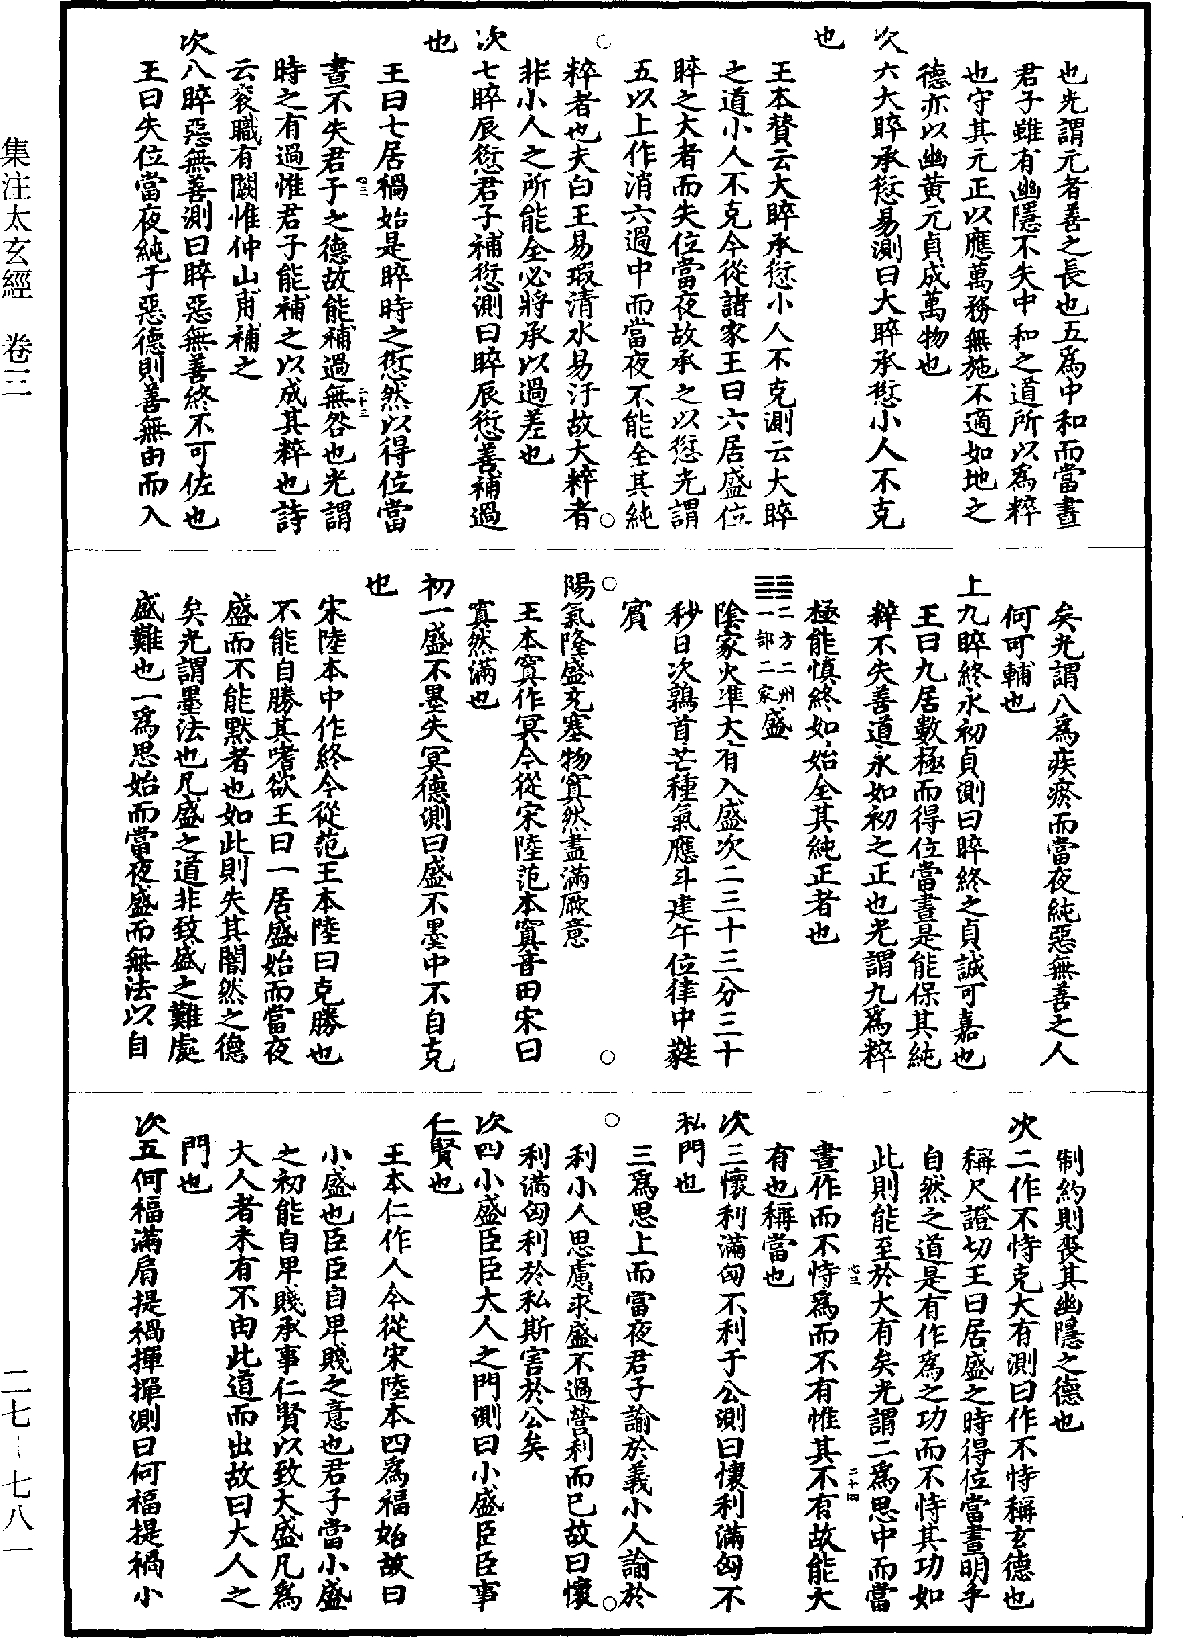 也光謂元者善之長也五爲中和而當晝
君子雖有幽隱不失中和之道所以爲粹
也守其元正以應萬務無施不適如地之
德亦以幽黃元貞成萬物也
次六大睟承愆易測曰大睟承愆小人不克
也
王本贊云大睟承愆小人不克測云大睟
之道小人不克今從諸家王曰六居盛位
睟之大者而失位當夜故承之以愆光謂
五以上作消六過中而當夜不能全其純
粹者也夫白玉易瑕清水易汙故大粹者
非小人之所能全必將承以過差也
次七睟辰愆君子補愆測曰睟辰愆善補過
也
王曰七居禍始是睟時之愆然以得位當
晝不失君子之德故能補過無咎也光謂
時之有過惟君子能補之以成其粹也詩
云袞職有闕惟仲山甫補之
次八睟惡無善測曰睟惡無善終不可佐也
王曰失位當夜純于惡德則善無由而入
矣光謂八爲疾瘀而當夜純惡無善之人
何可輔也
上九睟終永初貞測曰睟終之貞誠可嘉也
王曰九居數極而得位當晝是能保其純
粹不失善道永如初之正也光謂九爲粹
極能慎終如始全其純正者也
二方二州
一部二家
盛
陰家火準大有入盛次二三十三分三十
秒日次鶉首芒種氣應斗建午位律中蕤
賓
陽氣隆盛充塞物窴然盡滿厥意
王本窴作冥今從宋陸范本窴音田宋曰
窴然滿也
初一盛不墨失冥德測曰盛不墨中不自克
也
宋陸本中作終今從范王本陸曰克勝也
不能自勝其嗜欲王曰一居盛始而當夜
盛而不能默者也如此則失其闇然之德
矣光謂墨法也凡盛之道非致盛之難處
盛難也一爲思始而當夜盛而無法以自
制約則喪其幽隱之德也
次二作不恃克大有測曰作不恃稱玄德也
稱尺證切王曰居盛之時得位當晝明乎
自然之道是有作爲之功而不恃其功如
此則能至於大有矣光謂二爲思中而當
晝作而不恃爲而不有惟其不有故能大
有也稱當也
次三懷利滿匈不利于公測曰懷利滿匈不
私門也
三爲思上而當夜君子諭於義小人諭於
利小人思慮求盛不過營利而已故曰懷
利滿匈利於私斯害於公矣
次四小盛臣臣大人之門測曰小盛臣臣事
仁賢也
王本仁作人今從宋陸本四爲福始故曰
小盛也臣臣自卑賤之意也君子當小盛
之初能自卑賤承事仁賢以致大盛凡爲
大人者未有不由此道而出故曰大人之
門也
次五何福滿肩提禍撣撣測曰何福提禍小
集注太玄經 卷三
二七—七八一